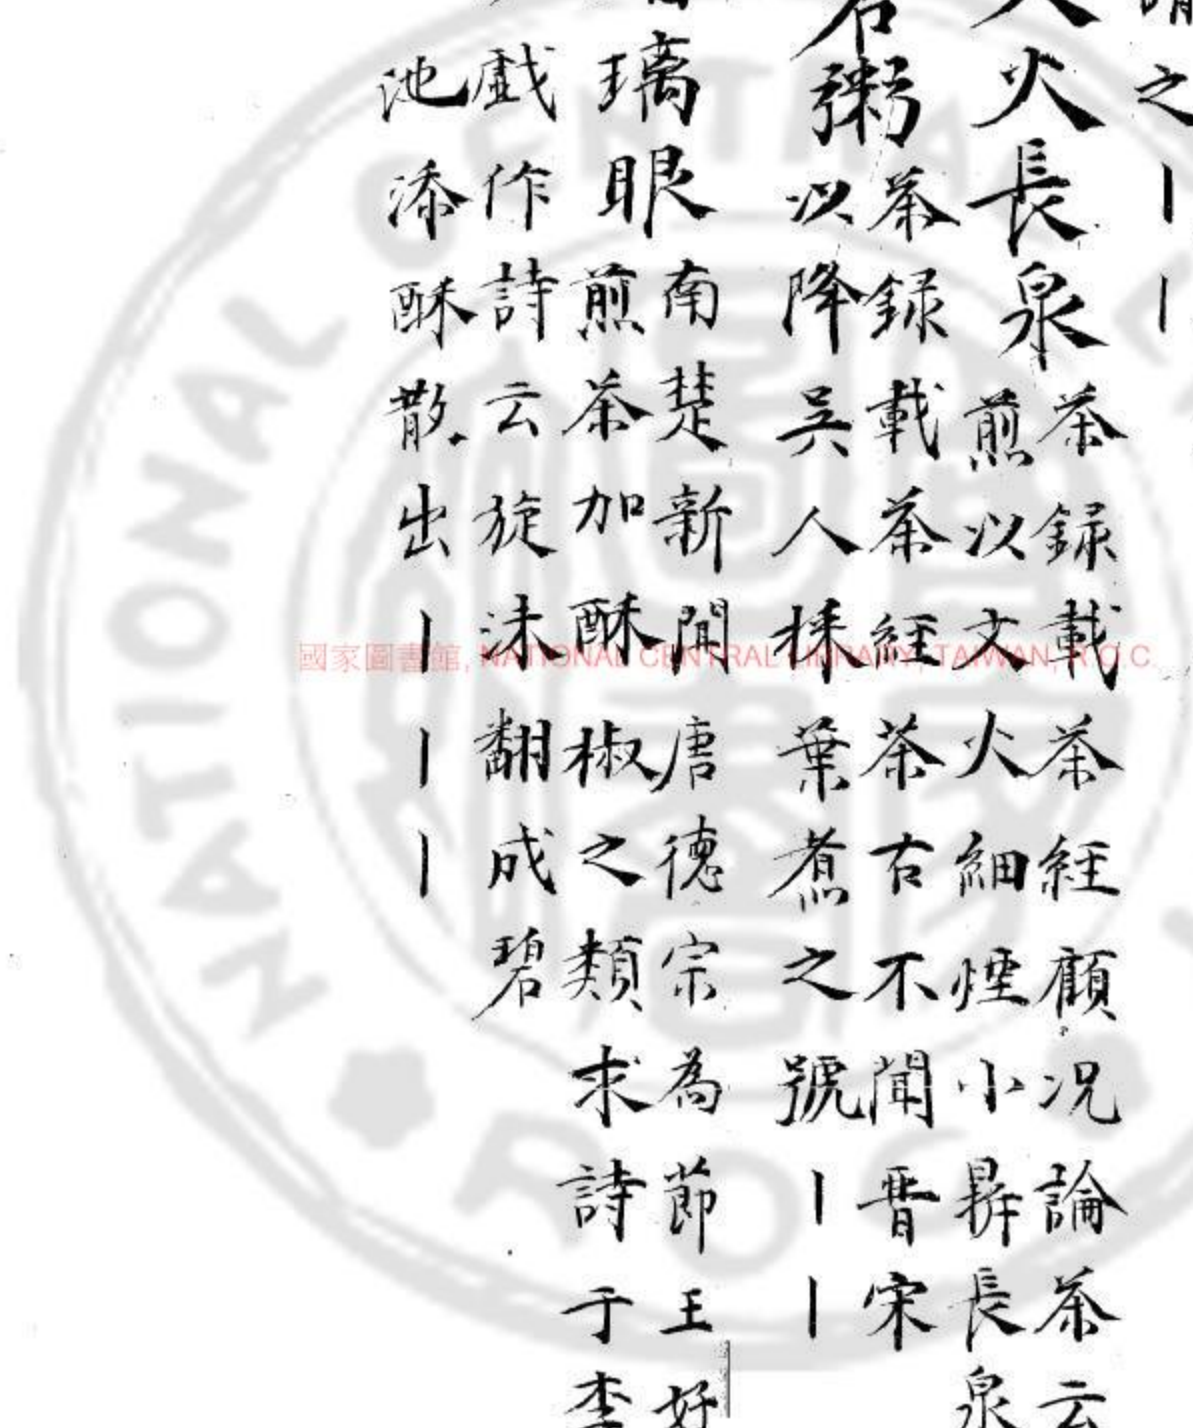 之丨丨
火長泉
茶録載茶經顧况論茶云
煎以文火細煙小鼎長泉
茗粥
茶録載茶經茶古不聞晋宋
以降吳人採葉煮之號丨丨
璃眼
南楚新聞唐德宗為節王好
煎茶加酥椒之類求詩于李
戯作詩云旋沫翻成碧
池添酥散出丨丨丨
國家圖書館, NATIONAL CENTRAL LIBRARY, TAIWAN, R.O.C.